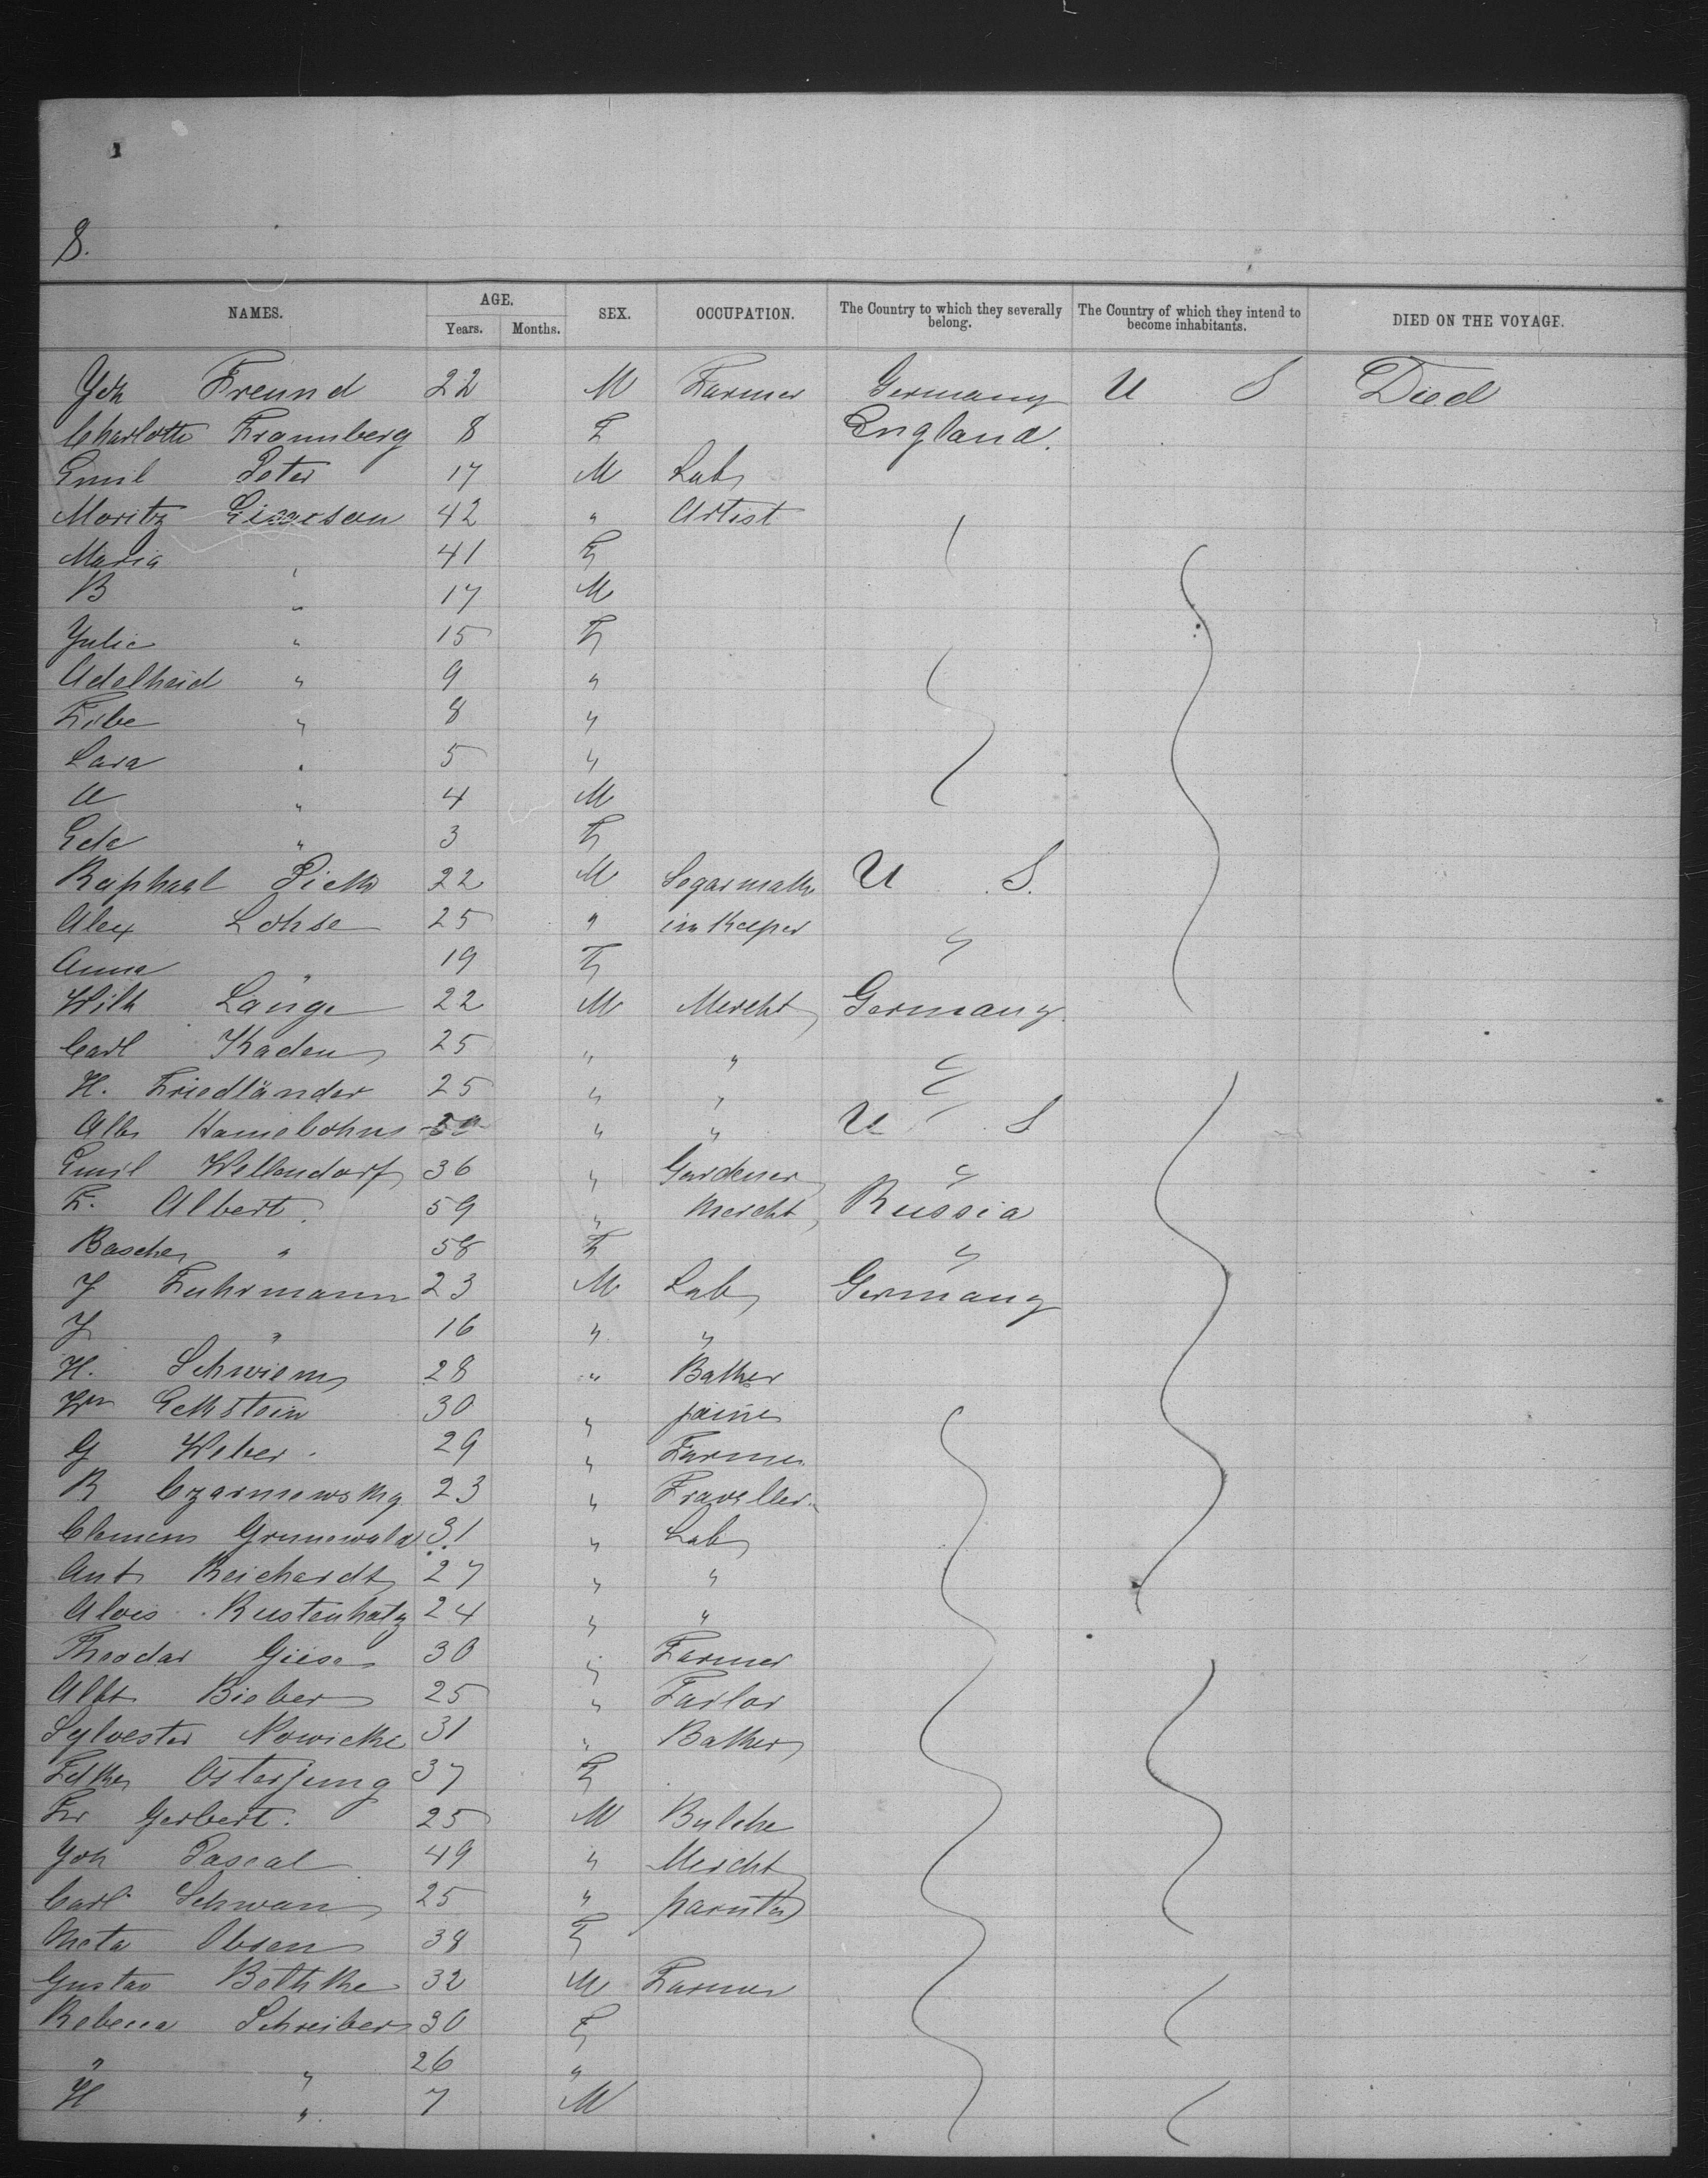 8.
NAMES. AGE. SEX. OCCUPATION. The Country to which they severally belong. The Country of which they intend to become inhabitants. DIED ON THE VOYAGE.
Years. Months.
Joh Freund 22 M Farmer Germany U S Died
Charlotte Frannberg 8 F England.
Emil Peter 17 M Lab
Moritz 42 " Artist
Maria " 41 F
B " 17 M
Julie " 15 F
Adelheid " 9 "
" 8 "
Lara " 5 "
A " 4 M
" 3 F
Raphael 22 M U S.
Alex Lohse 25 " inkeeper "
Anna " 19 F
Wilh Lange 22 M Mercht Germany
Carl Kaden 25 " " "
H. Friedländer 25 " " "
Alb " " U S
Emil Wellendorf 36 " Gardener "
F. Albert. 59 " Mercht Russia
Basche " 58 F "
J Fuhrmann 23 M Lab Germany
J " 16 " "
H. Schwiem 28 " Baker
Wm Eckstein 30 "
G Weber 29 " Farmer
R 23 " Traveller
Clemens Grunewald 31 " Lab
Ant Reichardt 27 " "
Alois 24 " "
Theodor Giese 30 " Farmer
Albt Bieber 25 " Tailor
Sylvester Nowicke 31 " Baker
Osterjung 37 F
Fr Gerbert. 25 M
Joh Pascal 49 " Mercht
Carl Schwan 25 "
Meta Olsen 38 F
Gustav Bethke 32 M Farmer
Schreiber 30 F
" " 26 "
H " 7 M